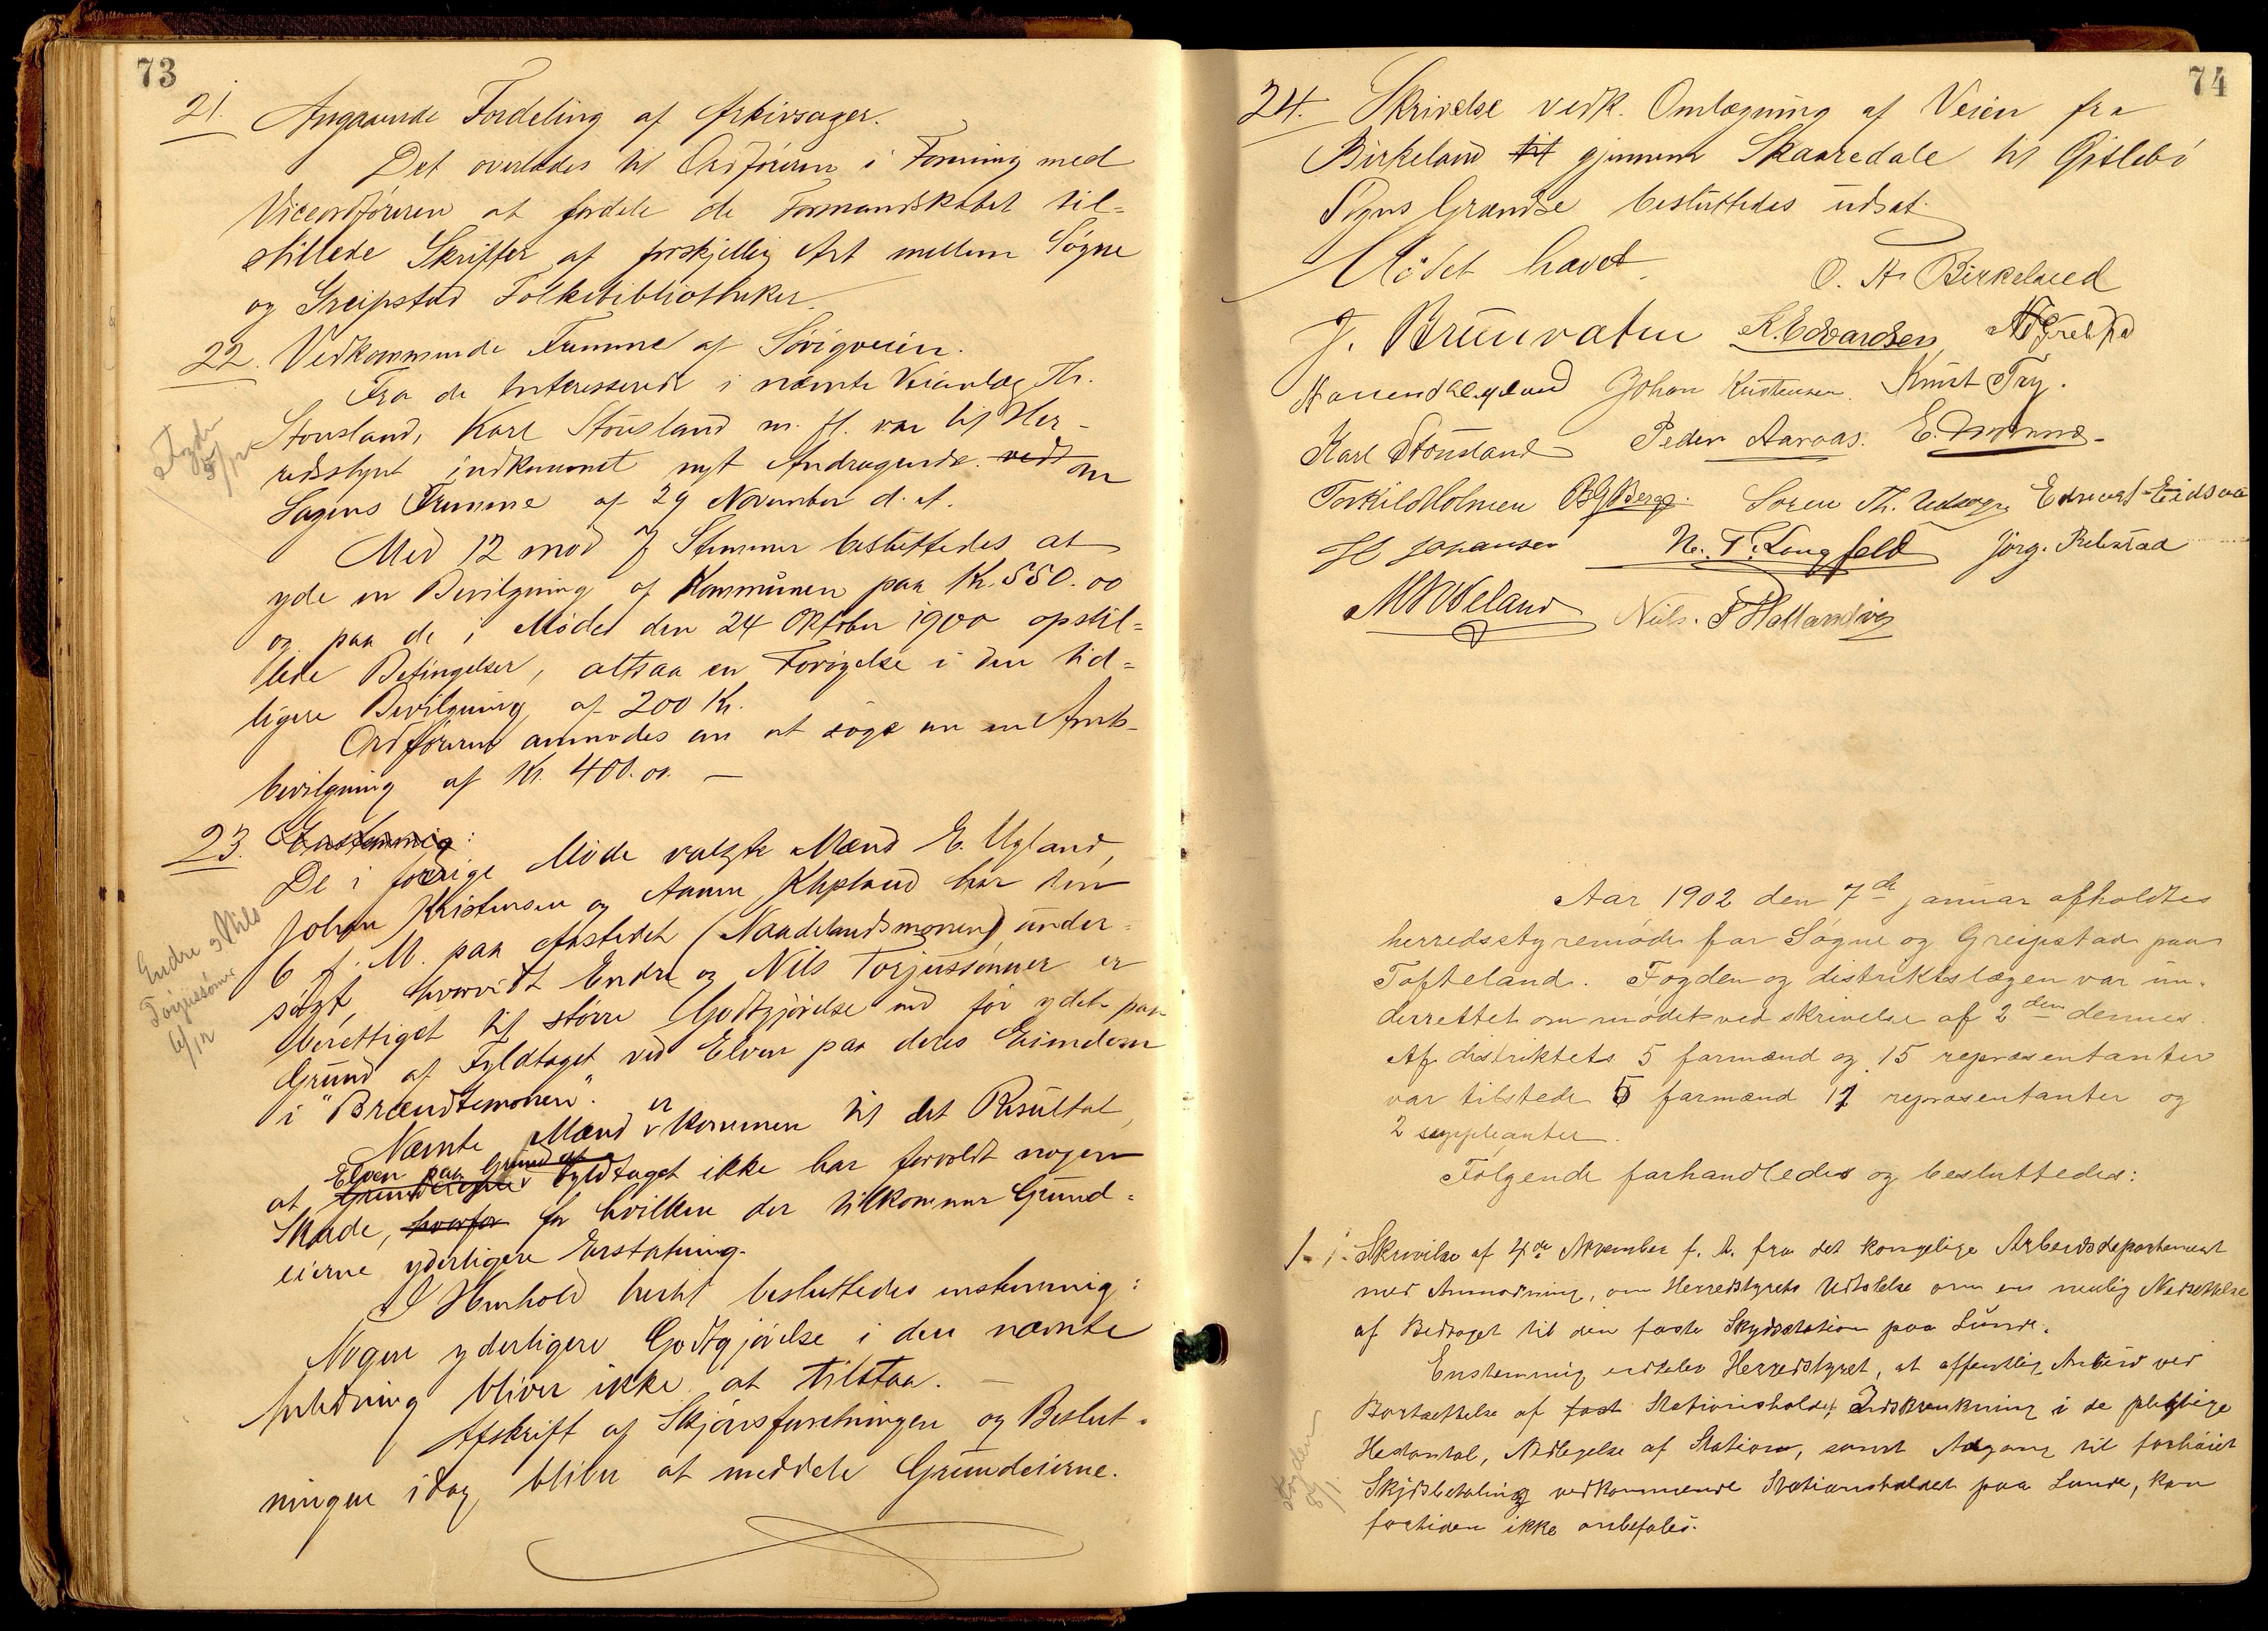 73
21. Angaaende Fordeling af Arkivsager.
Det overlodes til Ordføreren i Forening med
Viceordføreren at fordele de Formandskabet til=
stillede Skrifter af forskjellig Art mellem Søgne
og Greipstad Folkebibliotheker.
22. Vedkommende Fremme af Søvigveien.
Fra de Interesserede i nævnte Veianlæg Th.
Stousland, Karl Stousland m. fl. var til Her-
redsstyret indkommet nyt Andragende om
Sagens Fremme af 29 November d. A.
Fogden 5/12
Med 12 mod 7 Stemmer besluttedes at
yde en Bevilgning af Kommunen paa Kr. 550.00
og paa de i Møde den 24 Oktober 1900 opstil=
lede Betingelser, altsaa en Forøgelse i den tid=
ligere Bevilgning af 200 Kr.
Ordføreren anmodes om at søge om en Amts-
bevilgning af Kr. 400.00. —
23. Enstemmig:
De i forrige Møde valgte Mænd E. Ugland,
Johan Kristensen og Aanen Klepland har den
6 f. M. paa Aastedet (Naadelandsmonen) under=
søgt, hvorvidt Endre og Nils Torjussønner er
berettiget til større Godtgjørelse end før ydet paa
Grund af Fyldtaget ved Elven paa deres Eiendom
i "Brændtemonen".
Endre og Nils
Torjussønner
6/12
Nævnte Mænd er kommen til det Resultat,
at Elven paa Grund af Fyldtaget ikke har forvoldt nogen
Skade, hvorfor for hvilken der tilkommer Grund=
eierne yderligere Erstatning.
I Henhold hertil besluttedes enstemmig:
Nogen yderligere Godtgjørelse i den nævnte
Anledning bliver ikke at tilstaa. —
Afskrift af Skjønsforretningen og Beslut=
ningen idag bliver at meddele Grundeierne.
74
24. Skrivelse vedk. Omlægning af Veien fra
Birkeland til gjennem Skaaredale til Gislebø
Sogns Grændse besluttedes udsat.
Mødet hævet.
O. A. Birkeland
J. Bruunvatne K. Edvardsen
Johan Kristensen. Knut Try.
Karl Stousland Peder Aaraas.
Torkild Holmen B G Berge. Søren Th. Edvart Eidsaa
H Johansen N. T. Langfeld Jørg. Rebstad
Niels. T Hallandvig
Aar 1902 den 7de januar afholdtes
herredsstyremøde for Søgne og Greipstad paa
Tofteland. Fogden og distriktslægen var un-
derrettet om mødet ved skrivelse af 2den dennes.
Af distriktets 5 formænd og 15 repræsentanter
var tilstede 5 formænd 11 repræsentanter og
2 suppleanter.
Følgende forhandledes og besluttedes:
1. Skrivelse af 4de November f. A. fra det kongelige Arbeidsdepartement
med Anmodning, om Herredstyrets Udtalelse om en mulig Nedsættelse
af Bidraget til den faste Skydsstation paa Lunde.
Enstemmig udtaler Herredstyret, at offentlig Anbud ved
Bortsættelse af fast Stationshold, Indskrænkning i de pligtige
Hestantal, Nedlegelse af Station, samt Adgang til forhøiet
Skydsbetaling vedkommende Stationsholdet paa Lunde, kan
fortiden ikke anbefales.
Fogden
8/1.